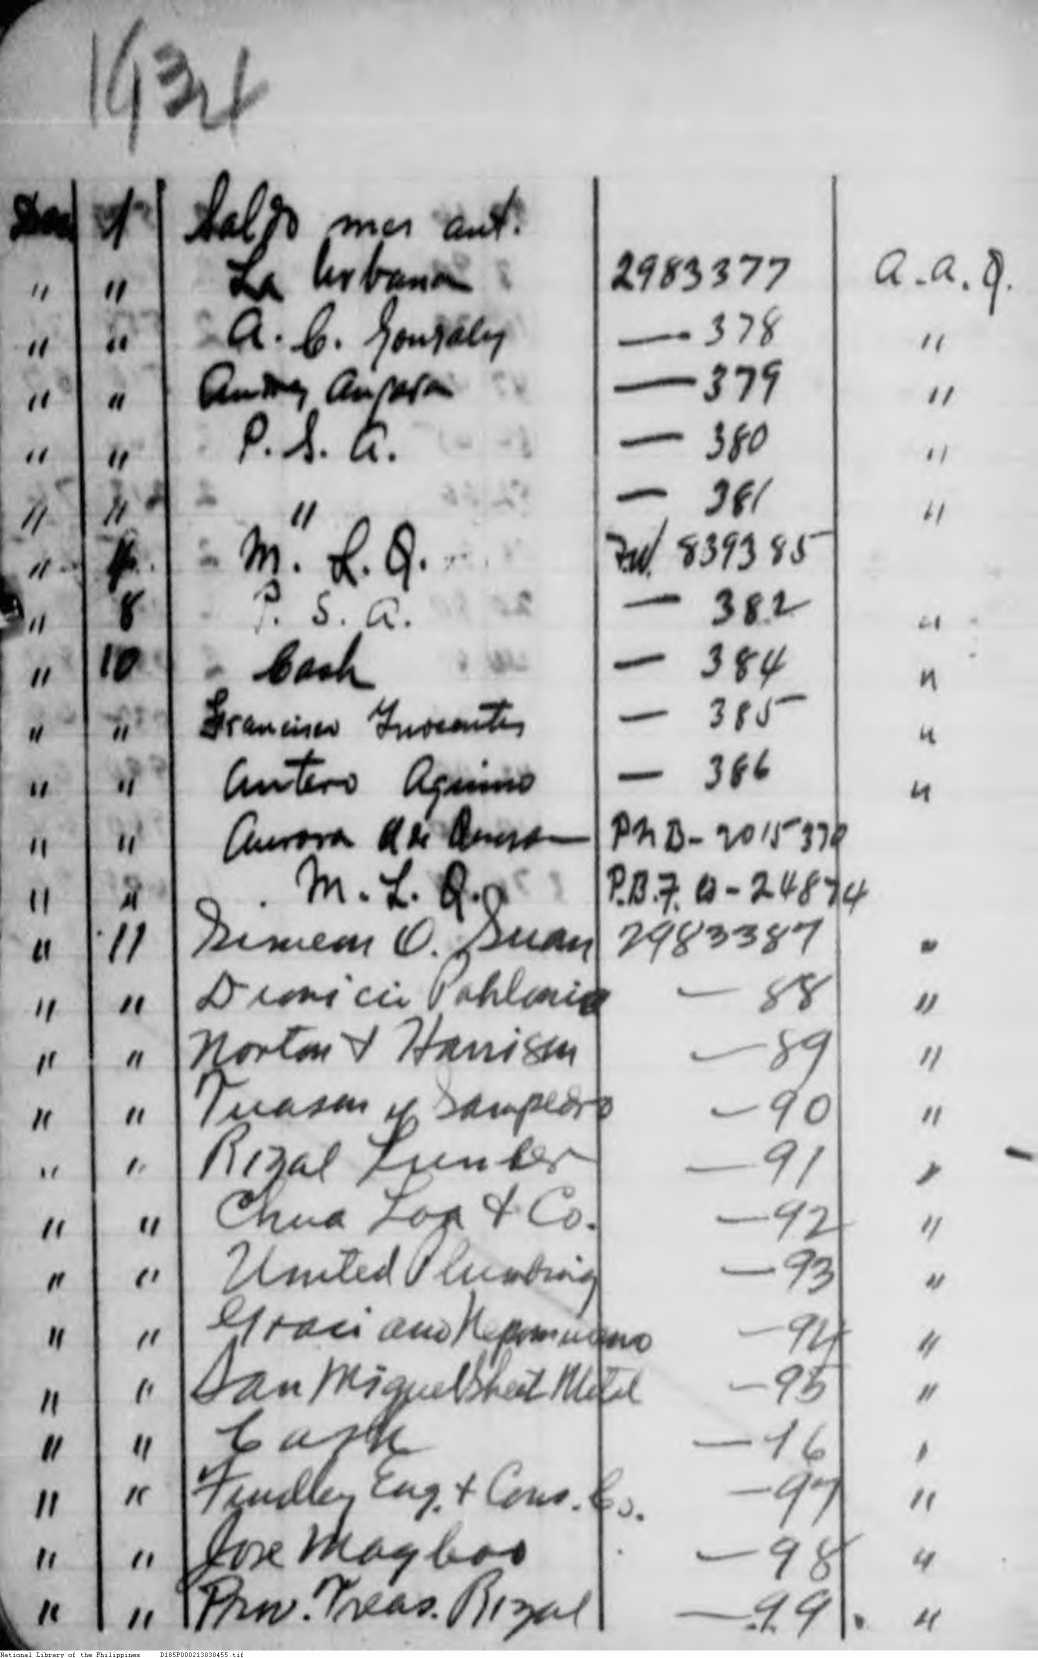 1934
Dec 1 Saldo mes ant.
" " La Urbana 2983377 A.A.Q.
" " A. C. Gonzalez — 378 "
" " Andres Angara — 379 "
" " P. S. A. — 380 "
" " " — 381 "
" M. L. Q. 839385
" 8 P. S. A. — 382 "
" 10 Cash — 384 "
" " Francisco Inocentes — 385 "
" " Antero Aquino — 386 "
" " Aurora PNB-2015370
" " M. L. Q. P.B.F. -24874
" 11 Simeon O. Suan 2983387 "
" " — 88 "
" " Norton & Harrison — 89 "
" " Tuason y Sampedro — 90 "
" " Rizal Lumber — 91 "
" " Chua Loa & Co. — 92 "
" " United Plumbing — 93 "
" " Graciano Nepomuceno — 94 "
" " San Miguel Sheet Metal — 95 "
" " Cash — 96 "
" " Findley Eng. & Cons. Co. — 97 "
" " Jose Magboo — 98 "
" " Prov. Treas. Rizal — 99. "
National Library of the Philippines D185P000213030455.tif